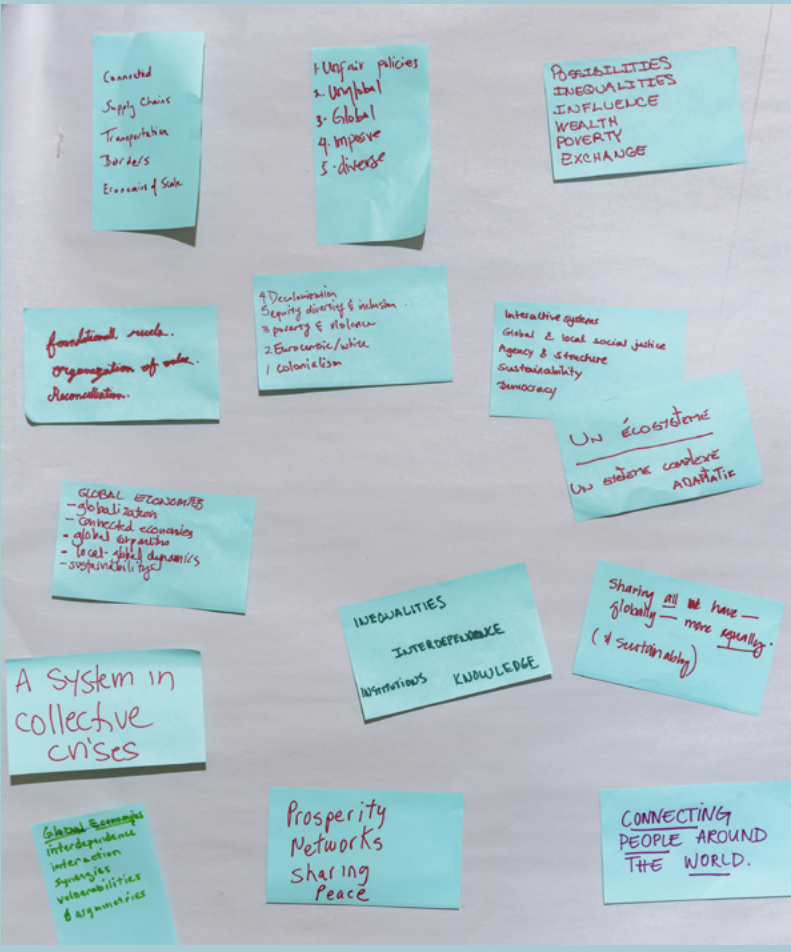 Connected
Supply Chains
Transportation
Borders
Economies of Scale
1. Unfair policies
2. Unglobal
3. Global
4. Imposive
5. diverse
POSSIBILITIES
INEQUALITIES
INFLUENCE
WEALTH
POVERTY
EXCHANGE
foundational needs.
organization of value.
Reconciliation.
4 Decolonization
5 equity diversity & inclusion.
3 poverty & violence
2 Eurocentric/white
1 colonialism
Interactive systems
Global & local social justice
Agency & structure
Sustainability
Democracy
UN ÉCOSYSTÈME
UN SYSTÈME COMPLEXE
ADAPTATIF
GLOBAL ECONOMIES
- globalization
- connected economies
- global
- local-global dynamics
- sustainability
INEQUALITIES
INTERDEPENDENCE
INSTITUTIONS KNOWLEDGE
Sharing all we have —
globally — more equally.
(& sustainably)
A System in
collective
crises
Global Economies
interdependence
interaction
synergies
vulnerabilities
& asymmetries
Prosperity
Networks
Sharing
Peace
CONNECTING
PEOPLE AROUND
THE WORLD.